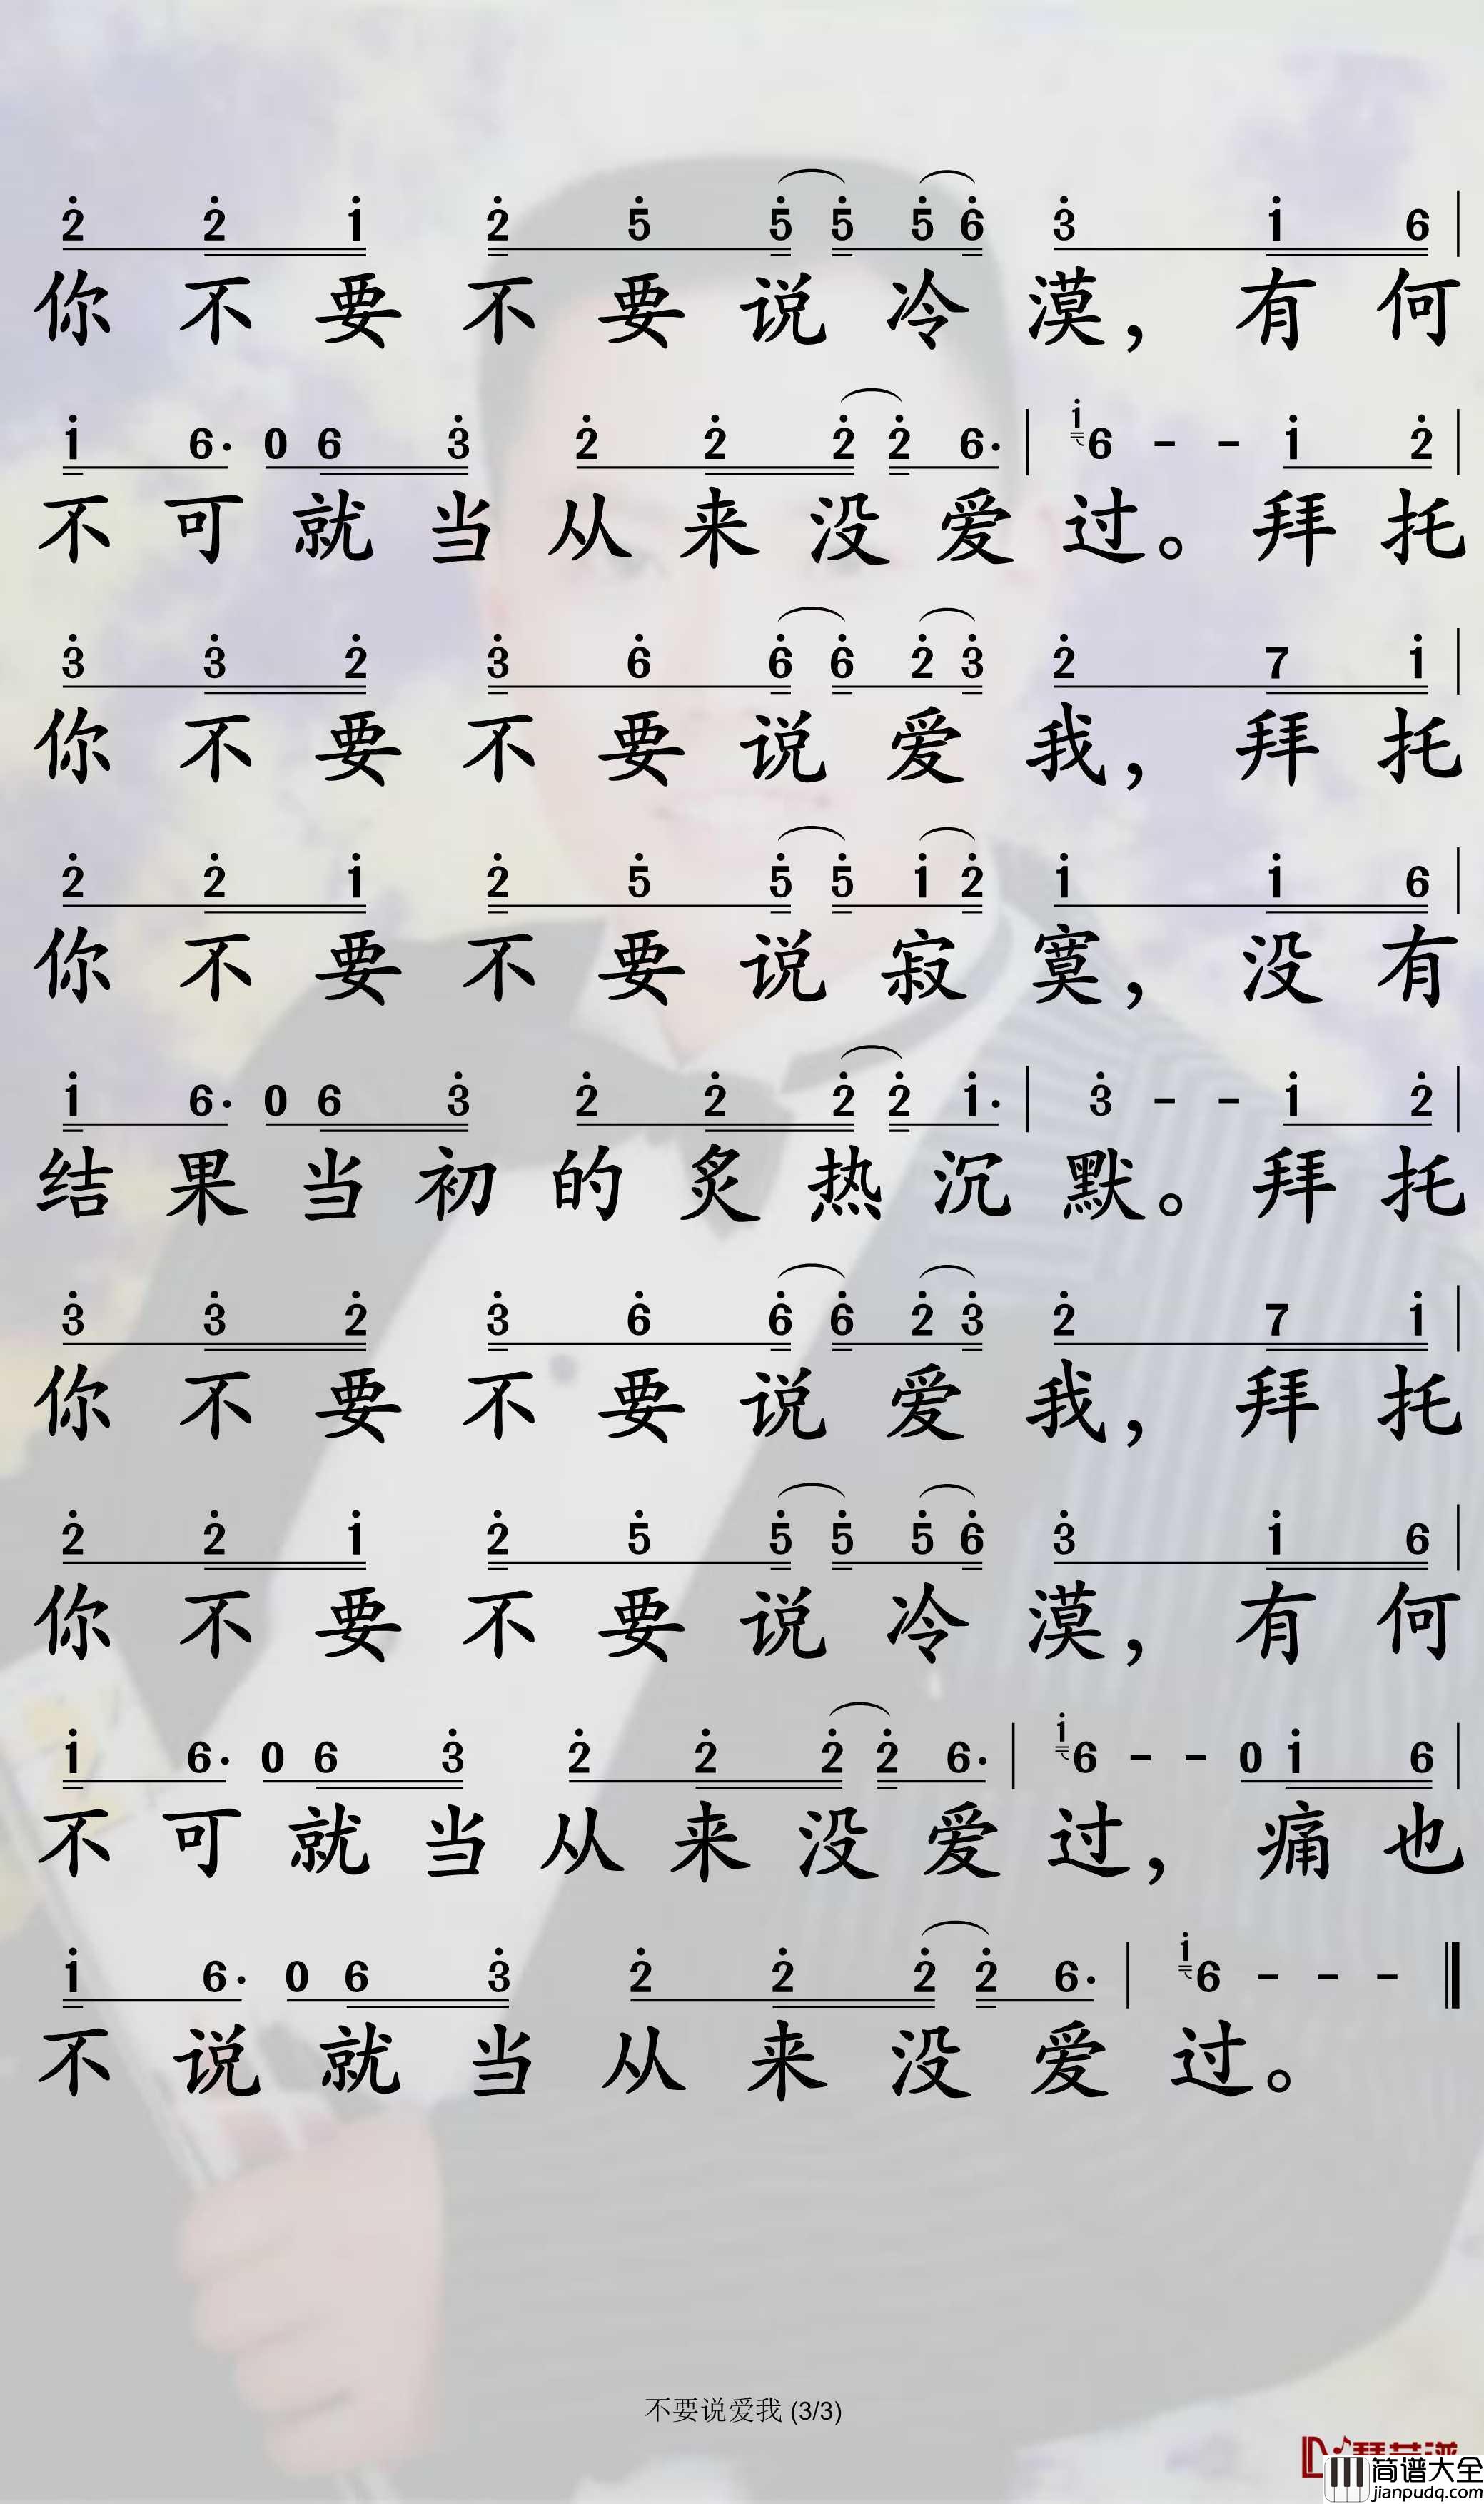 2̇ 2̇ 1̇ 2̇ 5̇ 5̇ 5̇ 5̇ 6̇ 3̇ 1̇ 6 |
你不要不要说冷漠，有何
1̇ 6. 0 6 3̇ 2̇ 2̇ 2̇ 2̇ 6. | 1̇ 6 - - 1̇ 2̇ |
不可就当从来没爱过。拜托
3̇ 3̇ 2̇ 3̇ 6̇ 6̇ 6̇ 2̇ 3̇ 2̇ 7 1̇ |
你不要不要说爱我，拜托
2̇ 2̇ 1̇ 2̇ 5̇ 5̇ 5̇ 1̇ 2̇ 1̇ 1̇ 6 |
你不要不要说寂寞，没有
1̇ 6. 0 6 3̇ 2̇ 2̇ 2̇ 2̇ 1̇. | 3̇ - - 1̇ 2̇ |
结果当初的炙热沉默。拜托
3̇ 3̇ 2̇ 3̇ 6̇ 6̇ 6̇ 2̇ 3̇ 2̇ 7 1̇ |
你不要不要说爱我，拜托
2̇ 2̇ 1̇ 2̇ 5̇ 5̇ 5̇ 5̇ 6̇ 3̇ 1̇ 6 |
你不要不要说冷漠，有何
1̇ 6. 0 6 3̇ 2̇ 2̇ 2̇ 2̇ 6. | 1̇ 6 - - 0 1̇ 6 |
不可就当从来没爱过，痛也
1̇ 6. 0 6 3̇ 2̇ 2̇ 2̇ 2̇ 6. | 1̇ 6 - - - ‖
不说就当从来没爱过。
不要说爱我 (3/3)
简谱大全
jianpudq.com